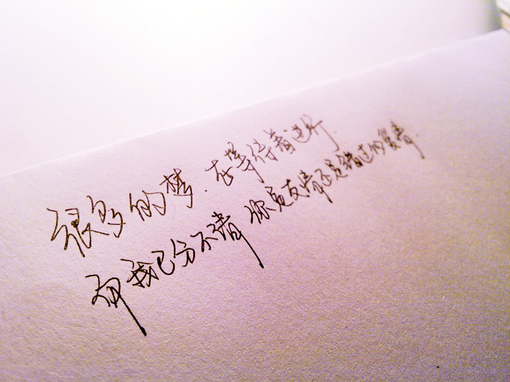 很多的梦.在等待着进行.
而我已分不清 你是友情还是错过的爱情.